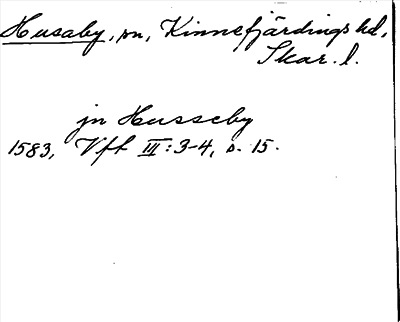 Husaby, sn, Kinnefjärdings hd,
Skar. l.
jn Husseby
1583, Vft III:3-4, s. 15.